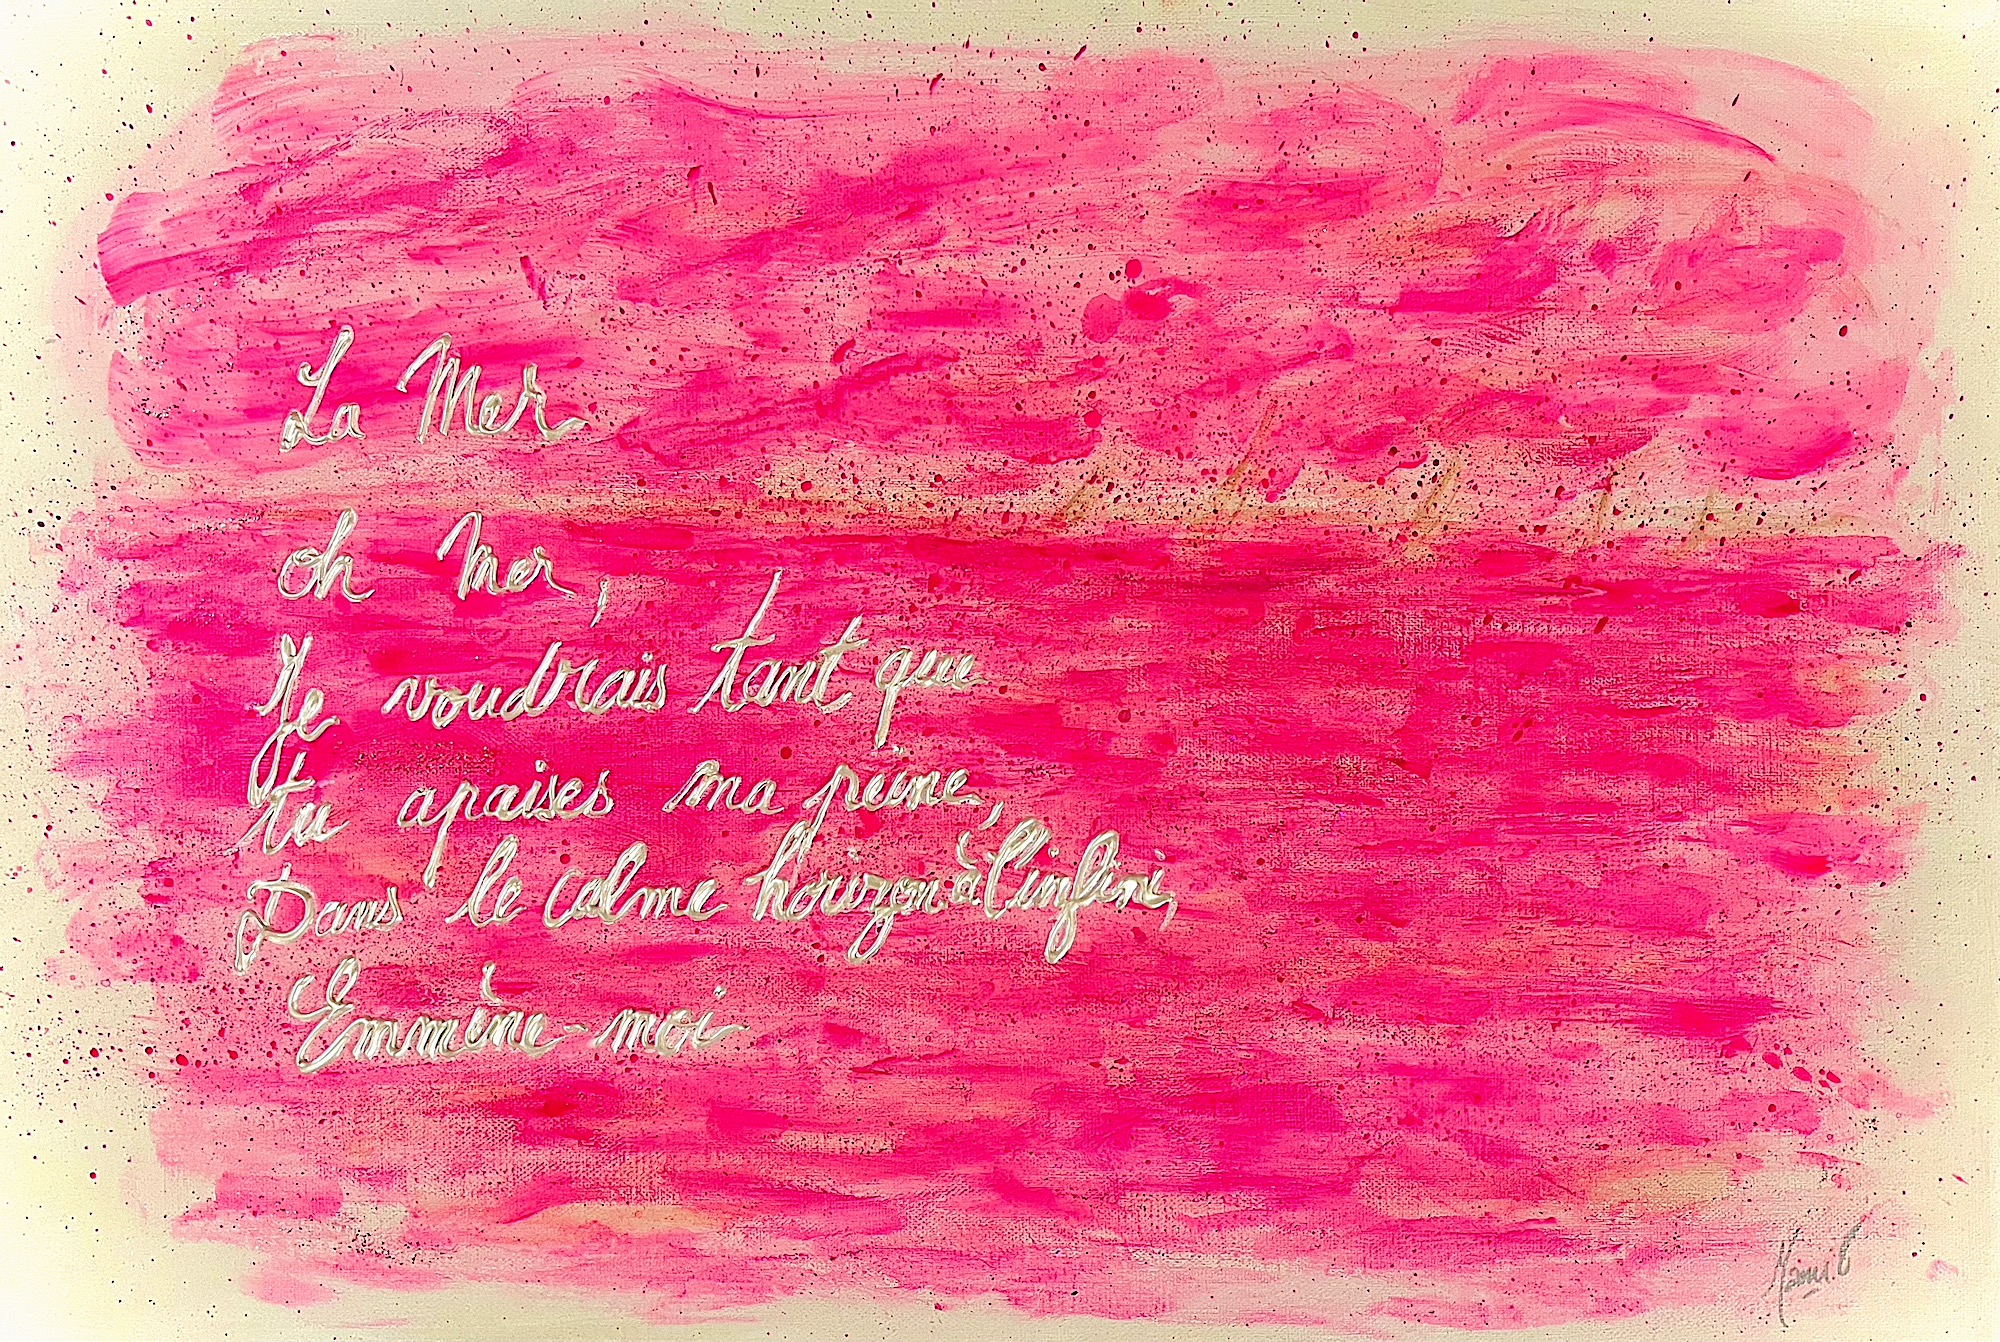 La Mer
oh Mer,
Je voudrais tant que
tu apaises ma peine,
Dans le calme horizon à l'infini,
Emmène-moi